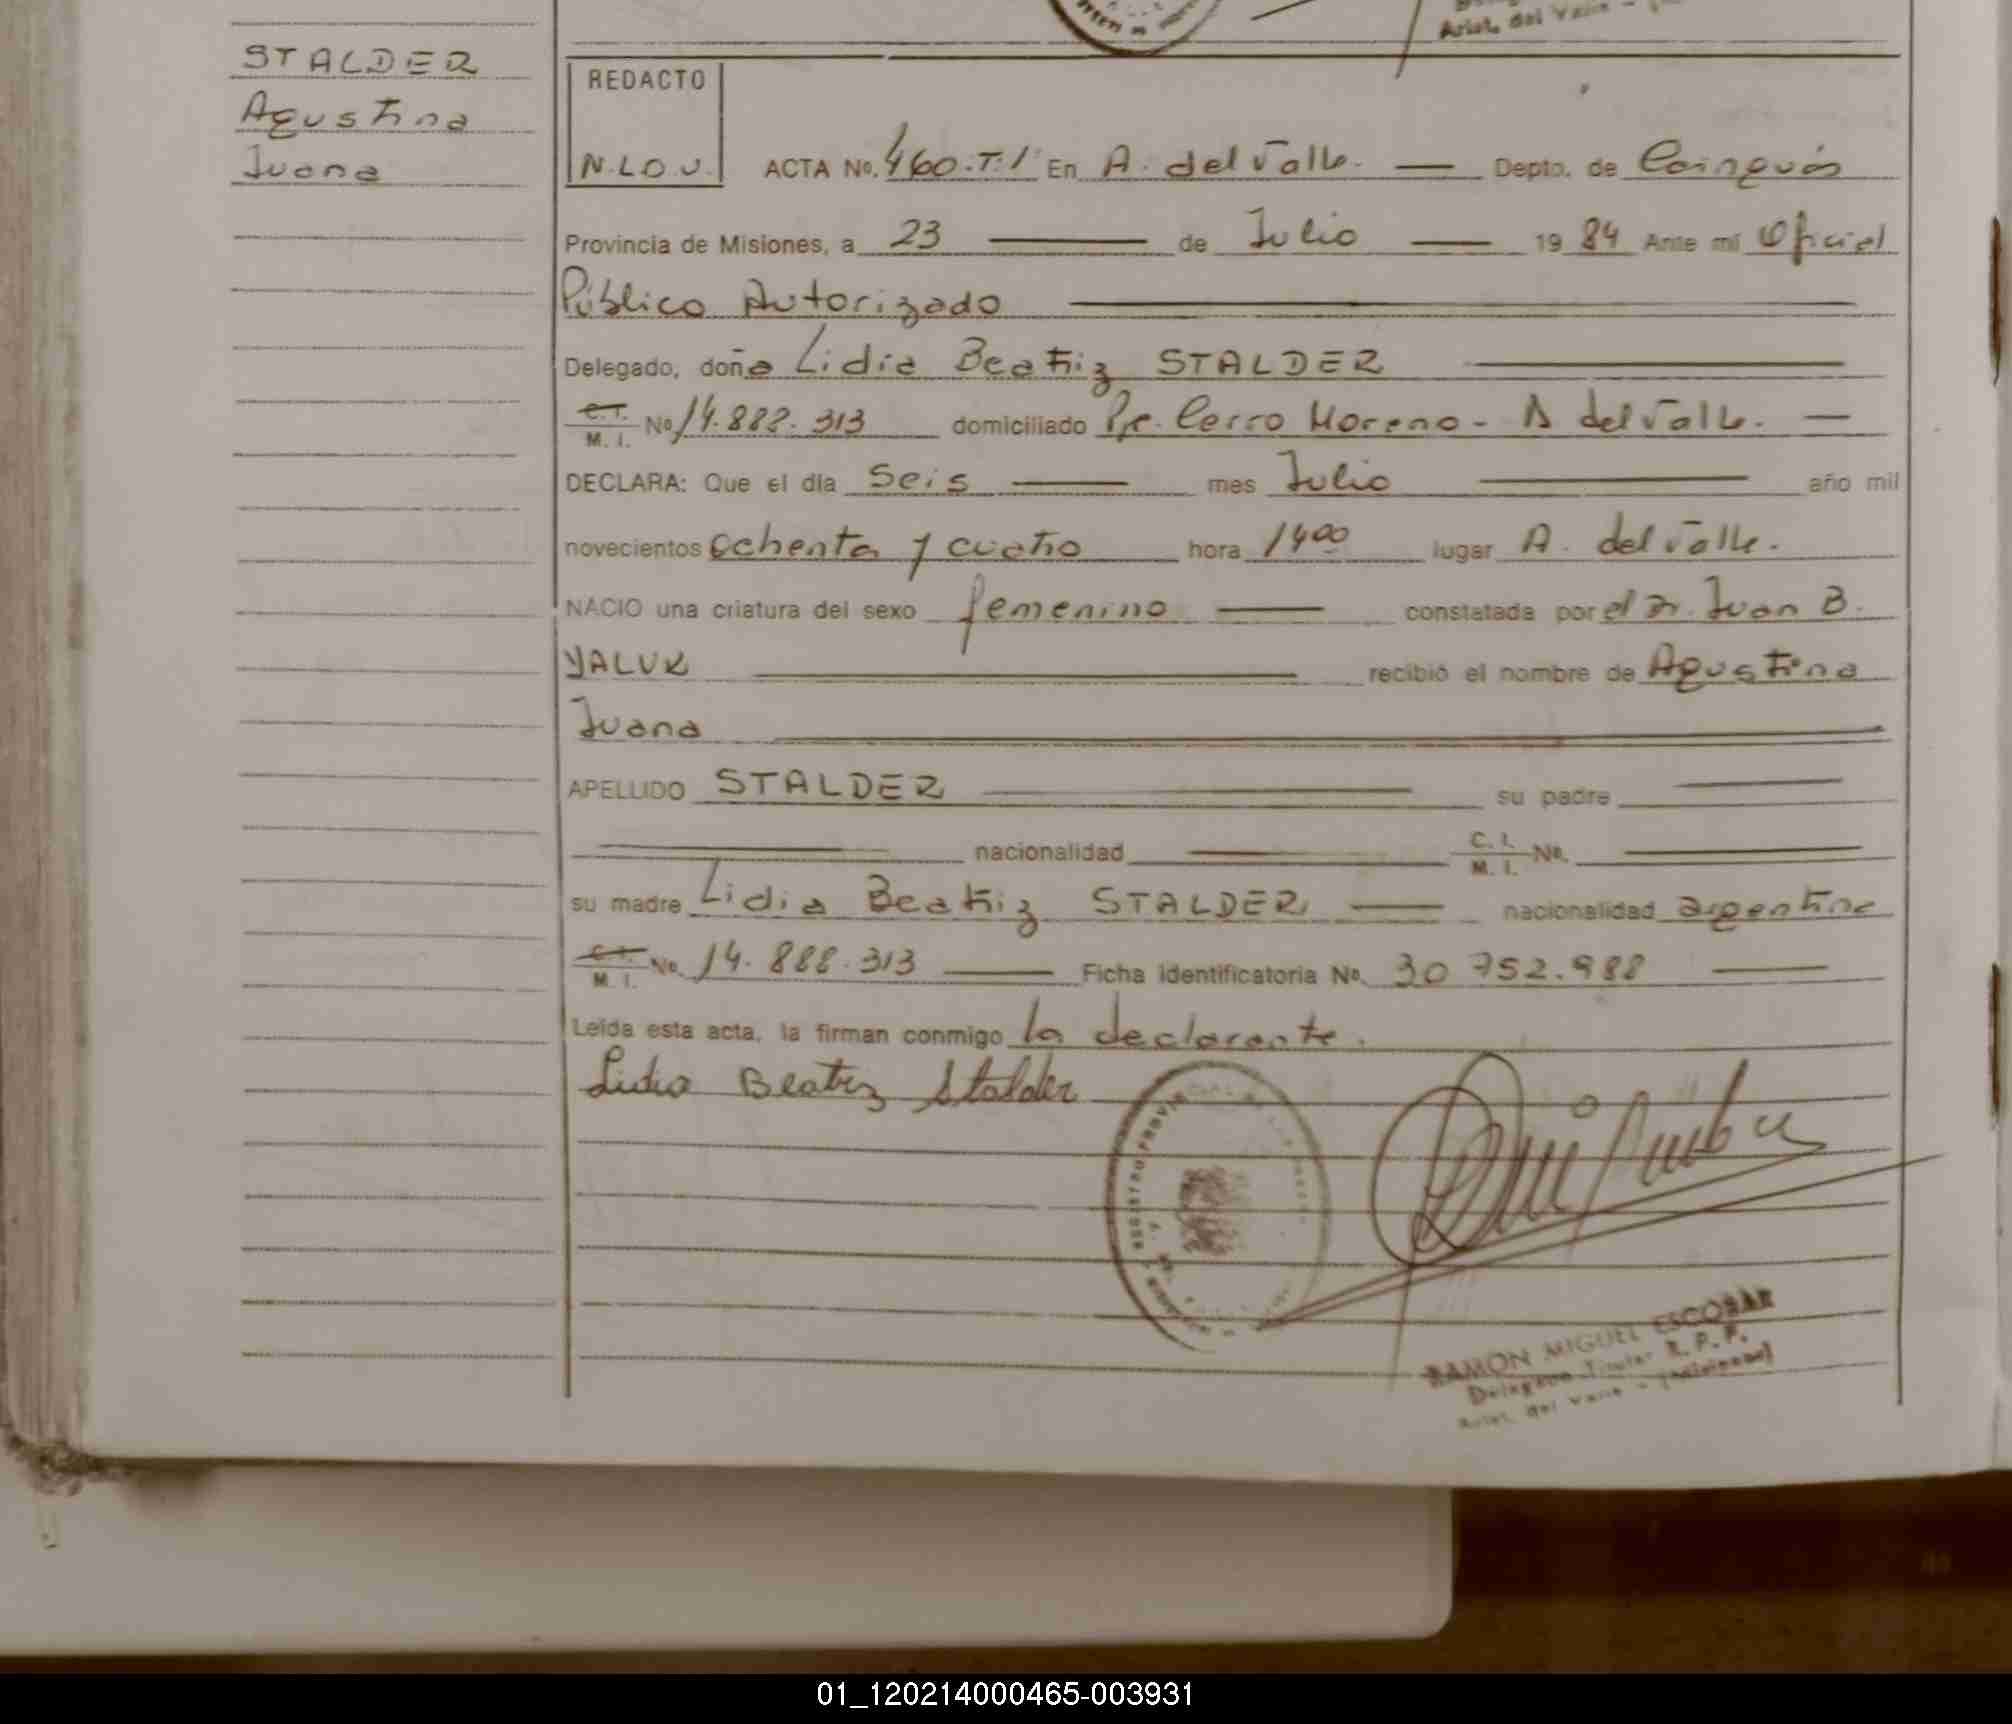 Arist. del Valle -
STALDER
Agustina
Juana
REDACTO
N.L.D.V.
ACTA No. 460.T.1 En A. del Valle. — Depto. de Cainguás
Provincia de Misiones, a 23 — de Julio — 19 84 Ante mí Oficial
Público Autorizado
Delegado, doña Lidia Beatriz STALDER
C.I. M. I. No 14.888.313 domiciliado Pje. Cerro Moreno - A del Valle. —
DECLARA: Que el día seis — mes Julio — año mil
novecientos ochenta y cuatro hora 1400 lugar A. del Valle.
NACIO una criatura del sexo femenino — constatada por el Dr. Juan B.
YALUK — recibió el nombre de Agustina
Juana
APELLIDO STALDER — su padre —
— nacionalidad — C. I. M. I. No. —
su madre Lidia Beatriz STALDER — nacionalidad argentina
C.I. M. I. No. 14.888.313 — Ficha Identificatoria No. 30 752.988 —
Leída esta acta, la firman conmigo la declarante.
Lidia Beatriz Stalder
RAMON MIGUEL ESCOBAR
Delegado Titular R. P. P.
Arist. del Valle - (Misiones)
01_120214000465-003931